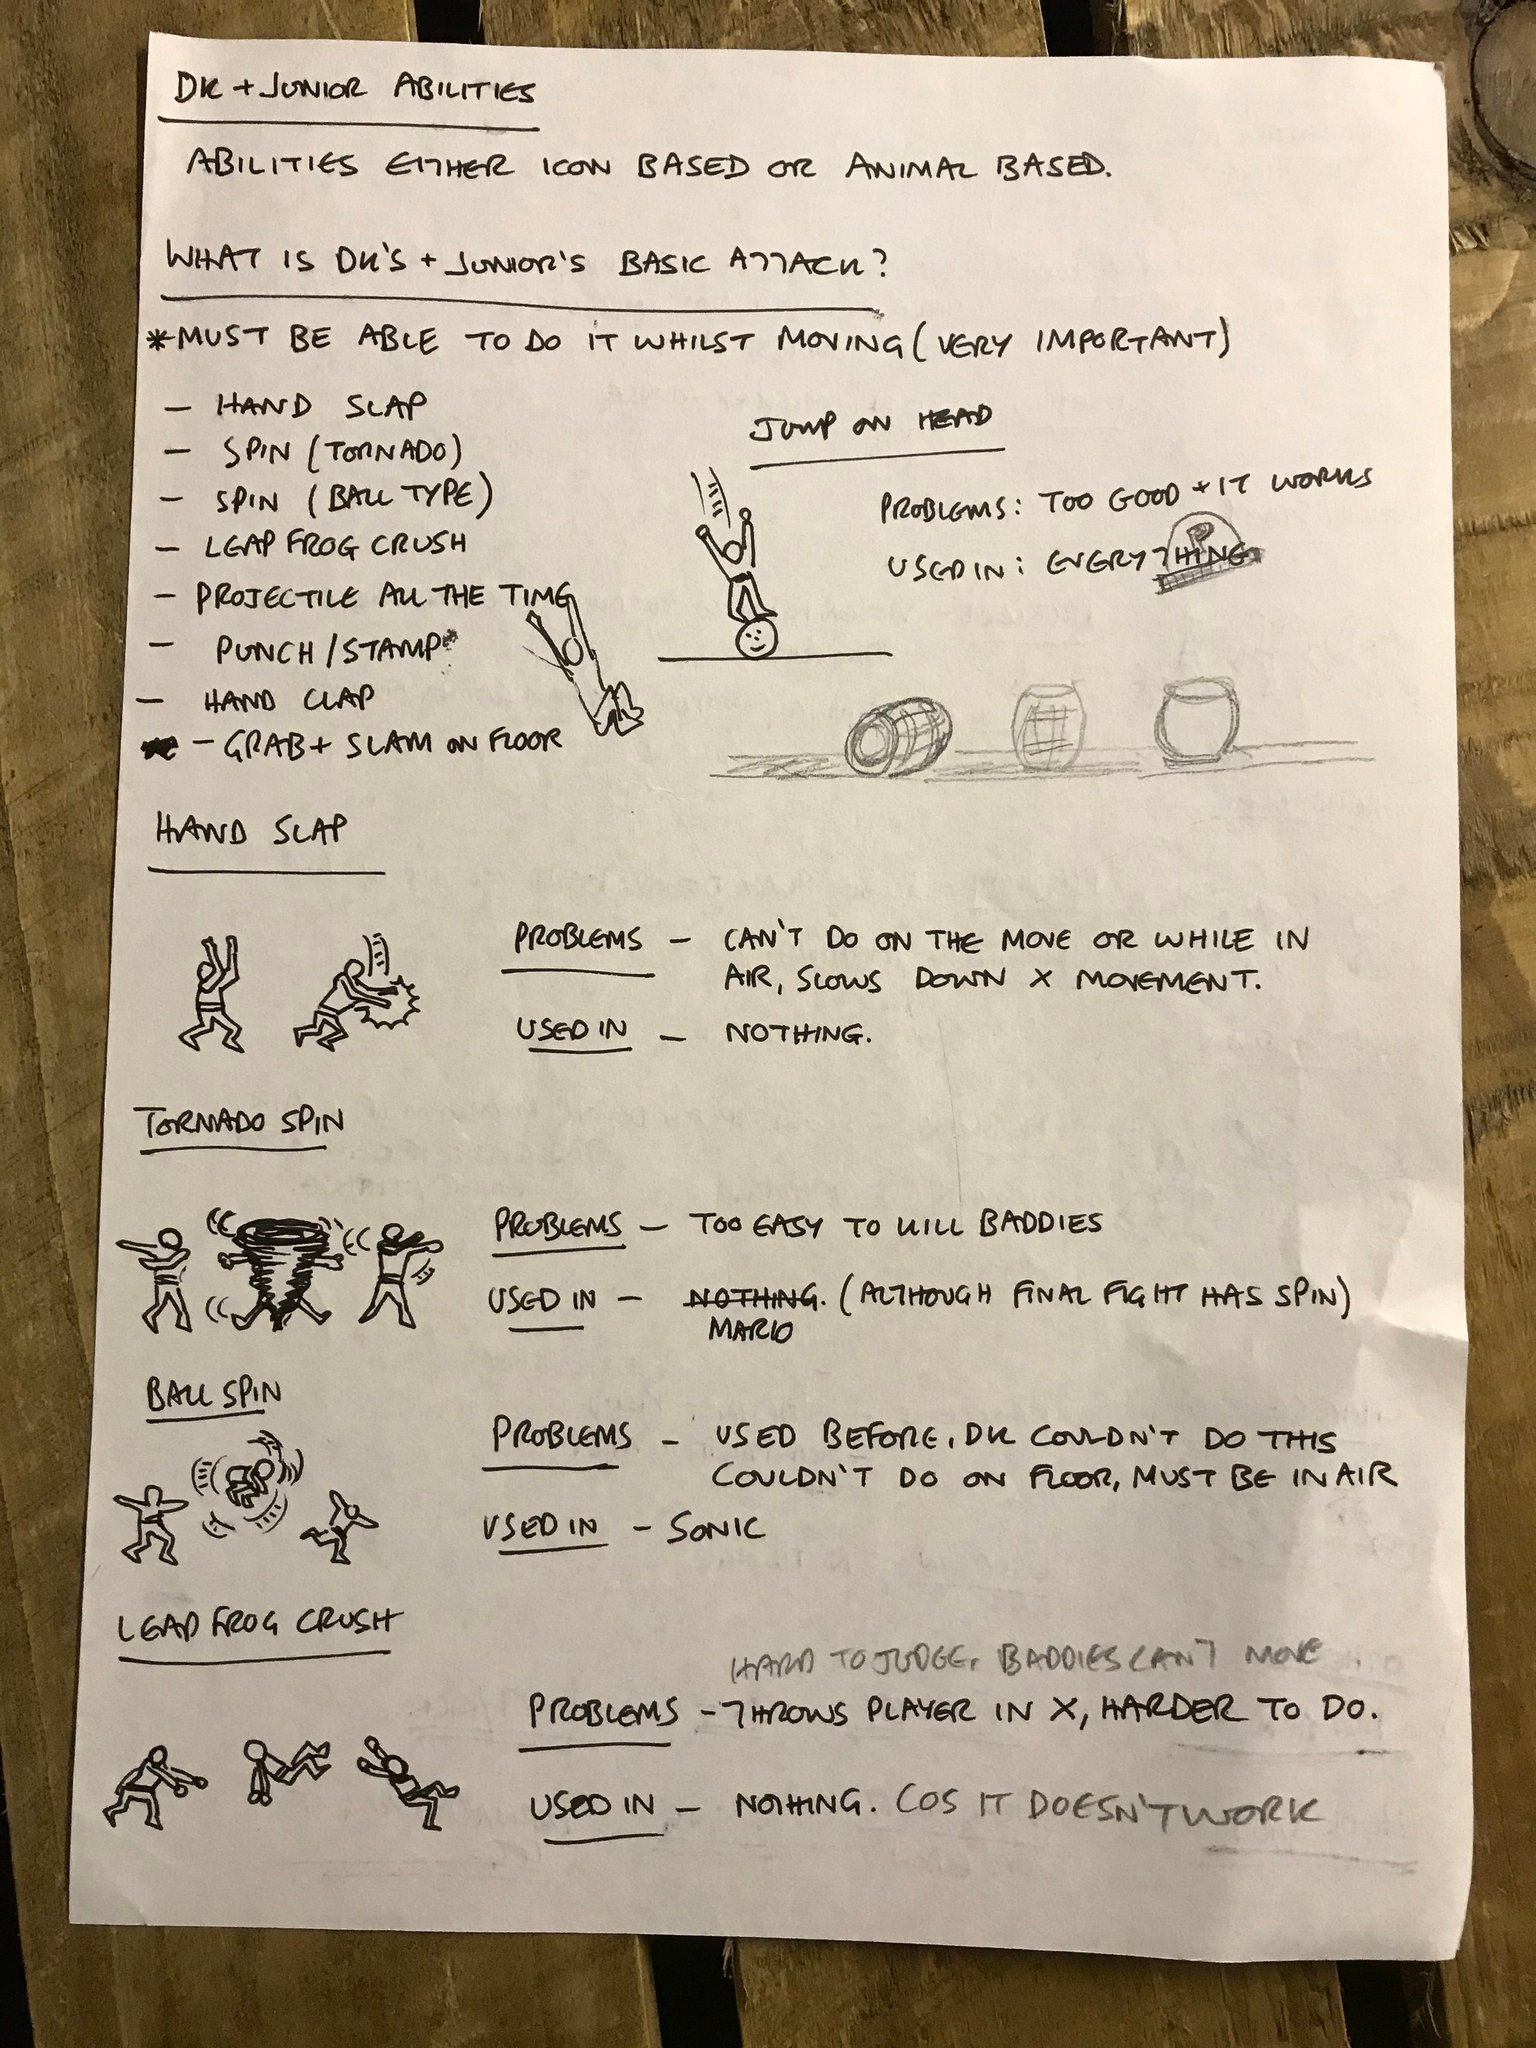 DK + JUNIOR ABILITIES
ABILITIES EITHER ICON BASED OR ANIMAL BASED.
WHAT IS DK'S + JUNIOR'S BASIC ATTACK?
*MUST BE ABLE TO DO IT WHILST MOVING (VERY IMPORTANT)
- HAND SLAP
- SPIN (TORNADO)
- SPIN (BALL TYPE)
- LEAP FROG CRUSH
- PROJECTILE ALL THE TIME
- PUNCH/STAMP
- HAND CLAP
- GRAB + SLAM ON FLOOR
JUMP ON HEAD
PROBLEMS: TOO GOOD + IT WORKS
USED IN: EVERYTHING
P
HAND SLAP
PROBLEMS - CAN'T DO ON THE MOVE OR WHILE IN
AIR, SLOWS DOWN X MOVEMENT.
USED IN - NOTHING.
TORNADO SPIN
PROBLEMS - TOO EASY TO KILL BADDIES
USED IN - NOTHING. (ALTHOUGH FINAL FIGHT HAS SPIN)
MARIO
BALL SPIN
PROBLEMS - USED BEFORE, DK COULDN'T DO THIS
COULDN'T DO ON FLOOR, MUST BE IN AIR
USED IN - SONIC
LEAP FROG CRUSH
HARD TO JUDGE, BADDIES CAN'T MOVE
PROBLEMS - THROWS PLAYER IN X, HARDER TO DO.
USED IN - NOTHING. COS IT DOESN'T WORK